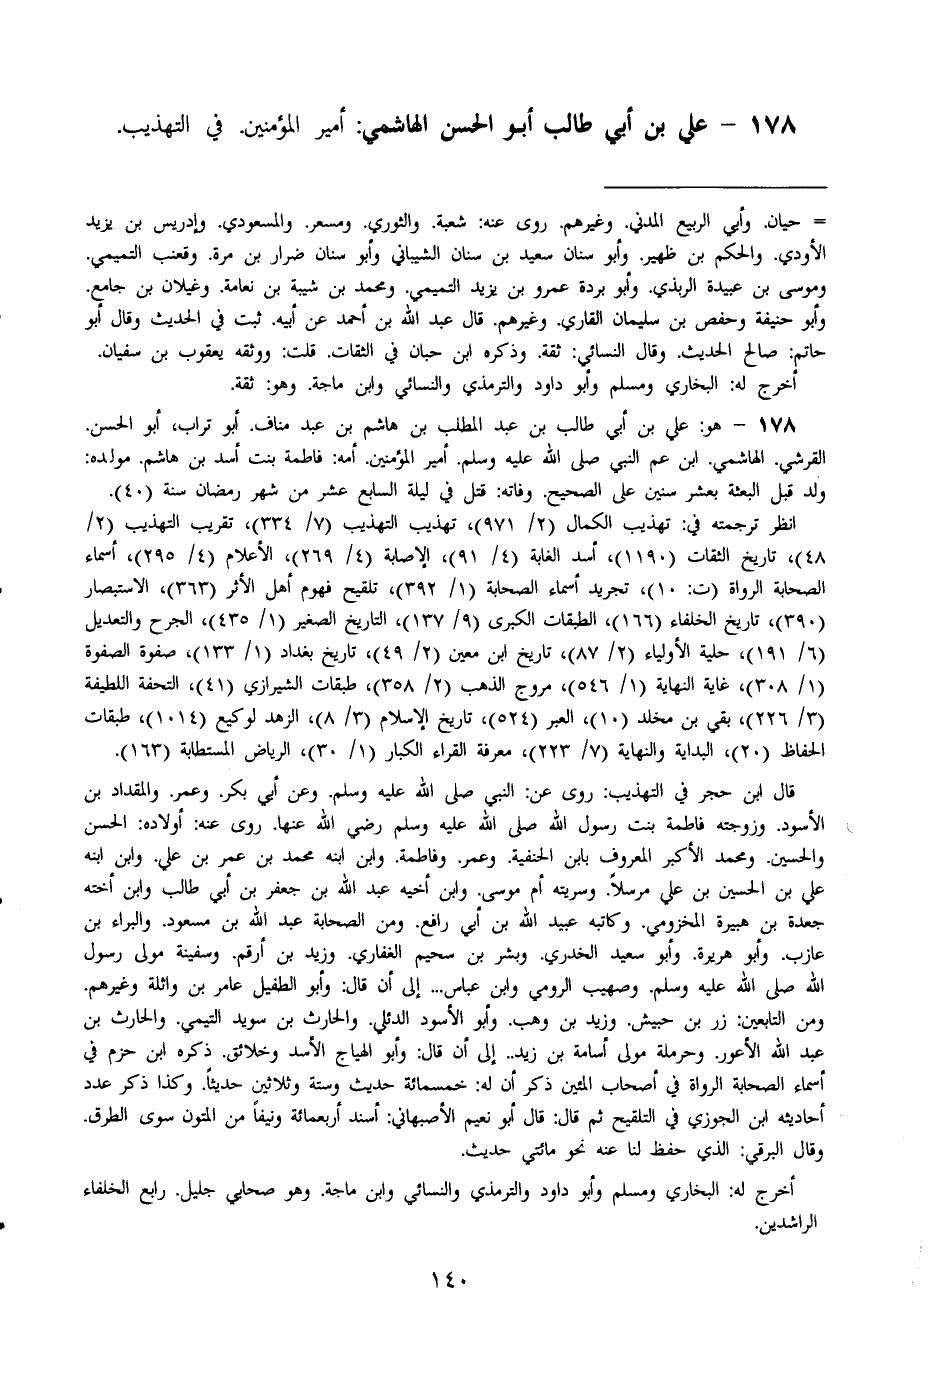 ١٧٨ - علي بن أبي طالب أبو الحسن الهاشمي: أمير المؤمنين. في التهذيب.
= حيان. وأبي الربيع المدني. وغيرهم. روى عنه: شعبة. والثوري. ومسعر. والمسعودي. وإدريس بن يزيد
الأودي. والحكم بن ظهير. وأبو سنان سعيد بن سنان الشيباني وأبو سنان ضرار بن مرة. وقعنب التميمي.
وموسى بن عبيدة الربذي. وأبو بردة عمرو بن يزيد التميمي. ومحمد بن شيبة بن نعامة. وغيلان بن جامع.
وأبو حنيفة وحفص بن سليمان القاري. وغيرهم. قال عبد الله بن أحمد عن أبيه. ثبت في الحديث وقال أبو
حاتم: صالح الحديث. وقال النسائي: ثقة. وذكره ابن حبان في الثقات. قلت: ووثقه يعقوب بن سفيان.
أخرج له: البخاري ومسلم وأبو داود والترمذي والنسائي وابن ماجة. وهو: ثقة.
١٧٨ - هو: علي بن أبي طالب بن عبد المطلب بن هاشم بن عبد مناف. أبو تراب، أبو الحسن.
القرشي. الهاشمي. ابن عم النبي صلى الله عليه وسلم. أمير المؤمنين. أمه: فاطمة بنت أسد بن هاشم. مولده:
ولد قبل البعثة بعشر سنين على الصحيح. وفاته: قتل في ليلة السابع عشر من شهر رمضان سنة (٤٠).
انظر ترجمته في: تهذيب الكمال (٢/ ٩٧١)، تهذيب التهذيب (٧/ ٣٣٤)، تقريب التهذيب (٢/
٤٨)، تاريخ الثقات (١١٩٠)، أسد الغابة (٤/ ٩١)، الإصابة (٤/ ٢٦٩)، الأعلام (٤/ ٢٩٥)، أسماء
الصحابة الرواة (ت: ١٠)، تجريد أسماء الصحابة (١/ ٣٩٢)، تلقيح فهوم أهل الأثر (٣٦٣)، الاستبصار
(٣٩٠)، تاريخ الخلفاء (١٦٦)، الطبقات الكبرى (٩/ ١٣٧)، التاريخ الصغير (١/ ٤٣٥)، الجرح والتعديل
(٦/ ١٩١)، حلية الأولياء (٢/ ٨٧)، تاريخ ابن معين (٢/ ٤٩)، تاريخ بغداد (١/ ١٣٣)، صفوة الصفوة
(١/ ٣٠٨)، غاية النهاية (١/ ٥٤٦)، مروج الذهب (٢/ ٣٥٨)، طبقات الشيرازي (٤١)، التحفة اللطيفة
(٣/ ٢٢٦)، بقي بن مخلد (١٠)، العبر (٥٢٤)، تاريخ الإسلام (٣/ ٨)، الزهد لوكيع (١٠١٤)، طبقات
الحفاظ (٢٠)، البداية والنهاية (٧/ ٢٢٣)، معرفة القراء الكبار (١/ ٣٠)، الرياض المستطابة (١٦٣).
قال ابن حجر في التهذيب: روى عن: النبي صلى الله عليه وسلم. وعن أبي بكر. وعمر. والمقداد بن
الأسود. وزوجته فاطمة بنت رسول الله صلى الله عليه وسلم رضي الله عنها. روى عنه: أولاده: الحسن
والحسين. ومحمد الأكبر المعروف بابن الحنفية. وعمر. وفاطمة. وابن ابنه محمد بن عمر بن علي. وابن ابنه
علي بن الحسين بن علي مرسلاً. وسريته أم موسى. وابن أخيه عبد الله بن جعفر بن أبي طالب وابن أخته
جعدة بن هبيرة المخزومي. وكاتبه عبيد الله بن أبي رافع. ومن الصحابة عبد الله بن مسعود. والبراء بن
عازب. وأبو هريرة. وأبو سعيد الخدري. وبشر بن سحيم الغفاري. وزيد بن أرقم. وسفينة مولى رسول
الله صلى الله عليه وسلم. وصهيب الرومي وابن عباس... إلى أن قال: وأبو الطفيل عامر بن واثلة وغيرهم.
ومن التابعين: زر بن حبيش. وزيد بن وهب. وأبو الأسود الدئلي. والحارث بن سويد التيمي. والحارث بن
عبد الله الأعور. وحرملة مولى أسامة بن زيد.. إلى أن قال: وأبو الهياج الأسد وخلائق. ذكره ابن حزم في
أسماء الصحابة الرواة في أصحاب المئين ذكر أن له: خمسمائة حديث وستة وثلاثين حديثاً. وكذا ذكر عدد
أحاديثه ابن الجوزي في التلقيح ثم قال: قال أبو نعيم الأصبهاني: أسند أربعمائة ونيفاً من المتون سوى الطرق.
وقال البرقي: الذي حفظ لنا عنه نحو مائتي حديث.
أخرج له: البخاري ومسلم وأبو داود والترمذي والنسائي وابن ماجة. وهو صحابي جليل. رابع الخلفاء
الراشدين.
١٤٠